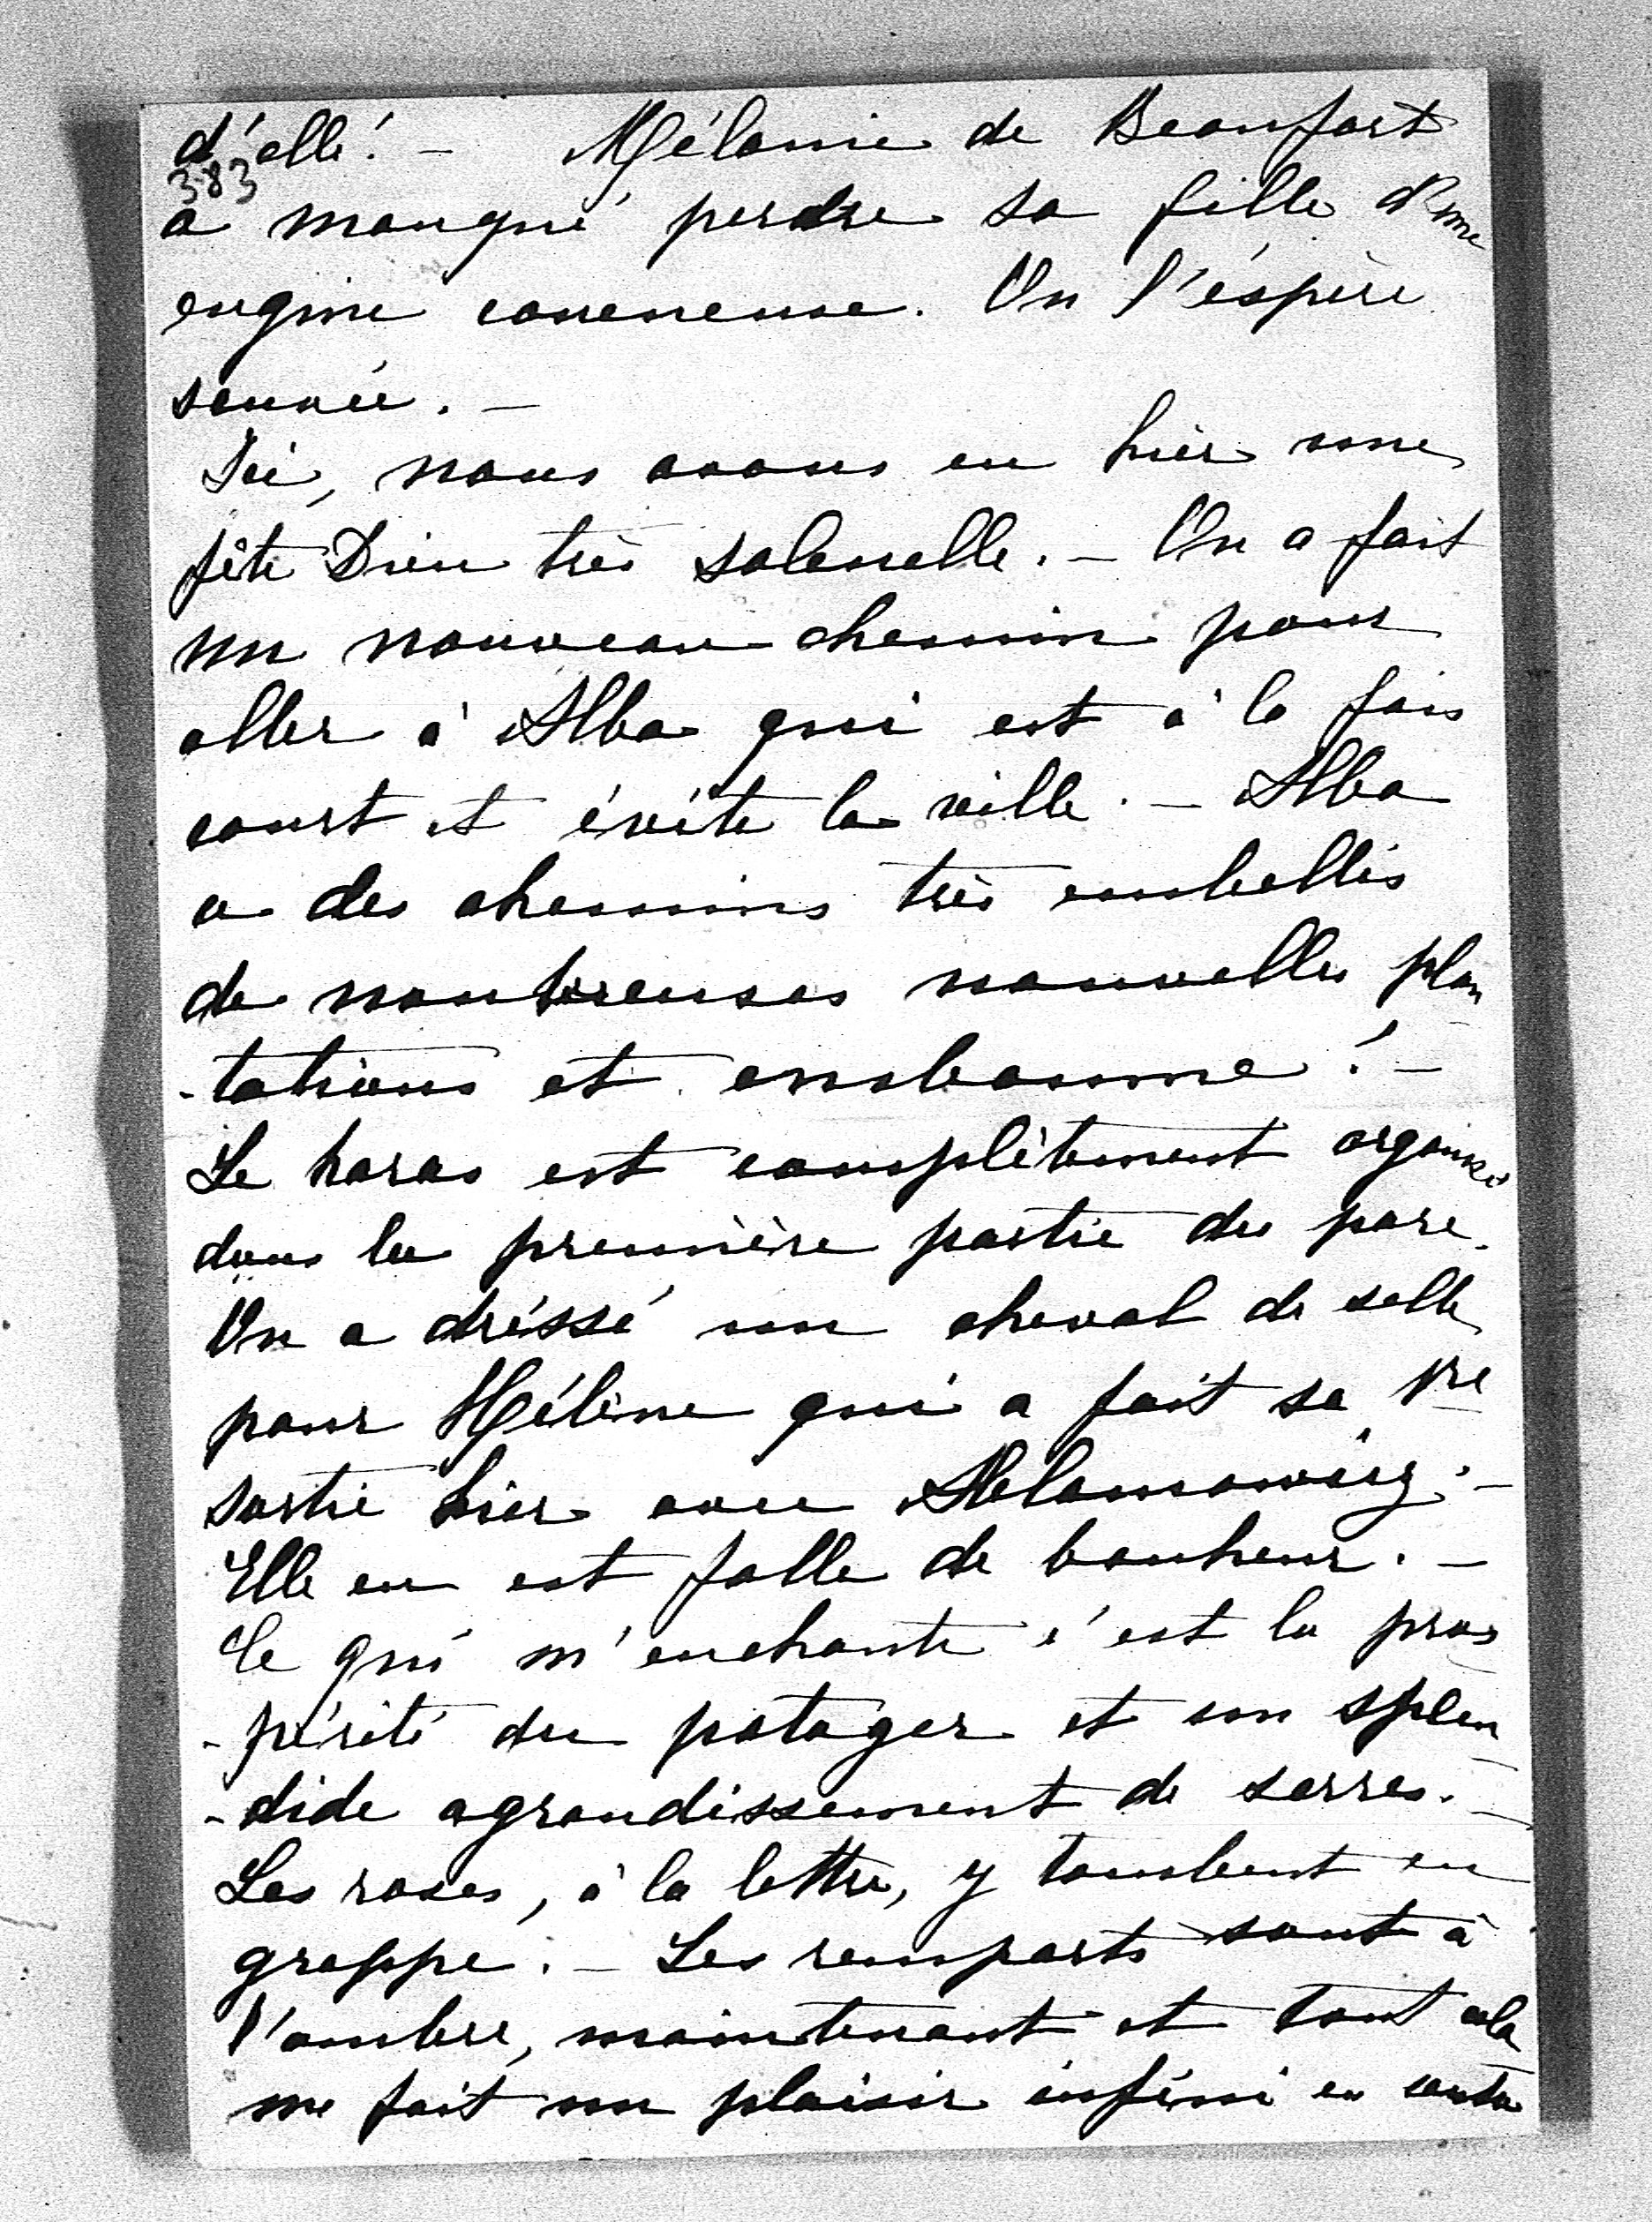 d'elle! - Mélanie de Beaufort
383
a manqué perdre sa fille d'une
engine coueneuse. On l'éspère
sauvée. -
Ici, nous avons eu hier une
fête Dieu très solennelle. - On a fait
un nouveau chemin pour
aller à Alba qui est à la fois
court et évite la ville. - Alba
a des chemins très embellis
de nombreuses nouvelles plan
-tations et embaume! -
Le haras est complètement organisé
dans la première partie du parc.
On a dréssé un cheval de selle
pour Hélène qui a fait sa 1re
sortie hier avec -
Elle en est folle de bonheur. -
Ce qui m'enchante c'est la pros
-périté du potager et son splen
-dide agrandissement de serres. -
Les roses, à la lettre, y tombent en
grappe. - Les remparts sont à
l'ombre, maintenant et tout cela
me fait un plaisir infini en